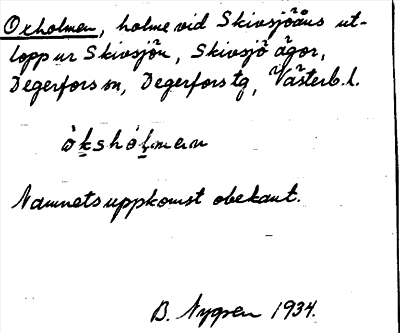 Oxholmen, holme vid Skivsjöåns ut-
lopp ur Skivsjön, Skivsjö ägor,
Degerfors sn, Degerfors tg, Västerb. l.
òkshòlmen
Namnets uppkomst obekant.
B. Nygren 1934.